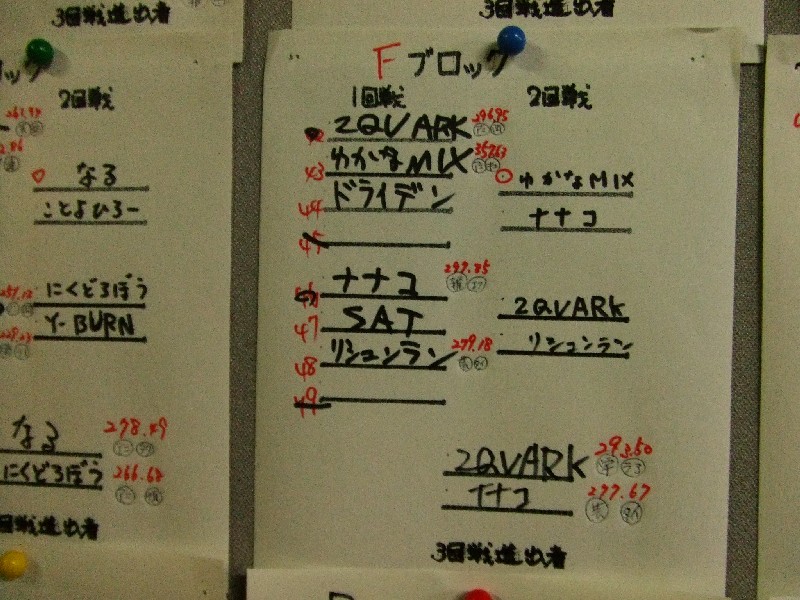 3回戦進出者
3回戦進出者
ロック
2回戦
なる
ことよひろー
にくどろぼう
Y-BURN
なる 278.49
にくどろぼう 266.68
回戦進出者
Fブロック
1回戦
2QVARK 296.95
43 ゆかなMIX
44 ドライデン
45
ナナコ 297.85
47 SAT
48 リシュンラン 279.18
49
2回戦
ゆかなMIX
ナナコ
2QVARK
リシュンラン
2QVARK 293.50
ナナコ 297.67
3回戦進出者